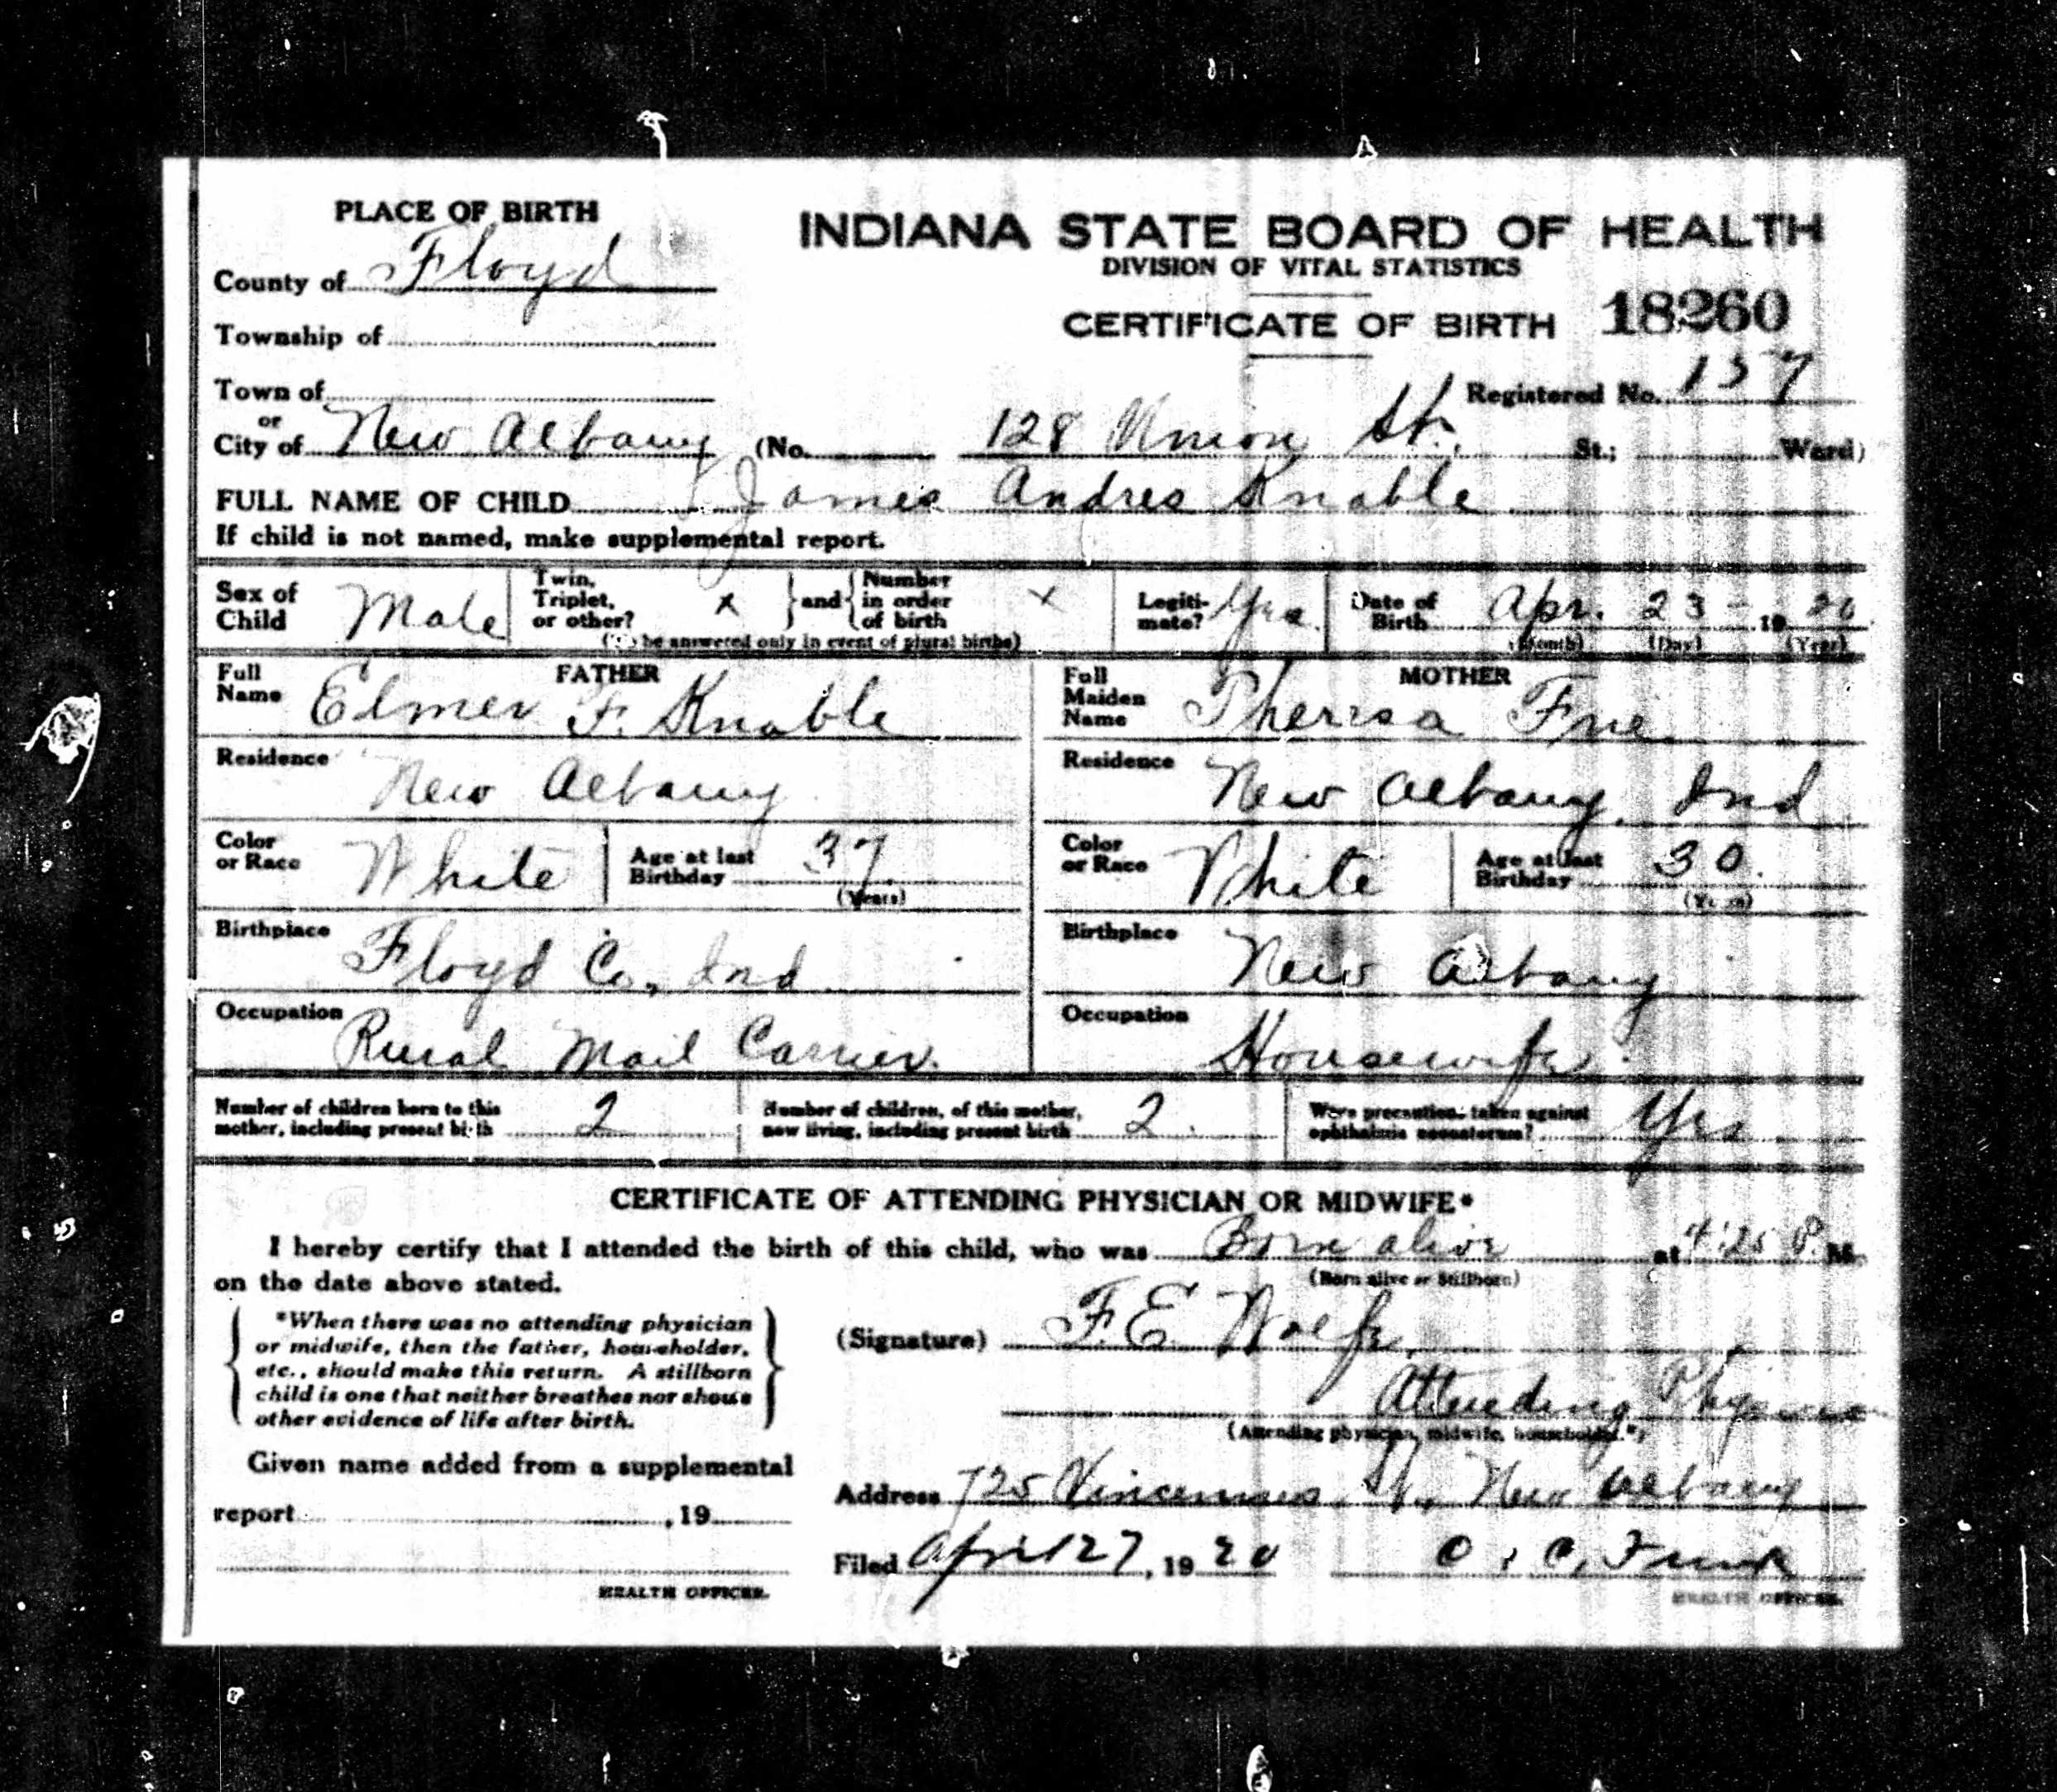 PLACE OF BIRTH
INDIANA STATE BOARD OF HEALTH
DIVISION OF VITAL STATISTICS
County of Floyd
CERTIFICATE OF BIRTH 18260
Township of
Registered No. 157
Town of
or
City of New Albany (No. 128 Union St. St.; Ward)
FULL NAME OF CHILD James Andres Knable
If child is not named, make supplemental report.
Sex of Child Male
Twin, Triplet, or other? x and Number in order of birth x
(To be answered only in event of plural births)
Legitimate? Yes
Date of Birth Apr. 23 - 1920
(Month) (Day) (Year)
FATHER
Full Name Elmer F. Knable
Residence New Albany
Color or Race White
Age at last Birthday 37
(Years)
Birthplace Floyd Co., Ind
Occupation Rural Mail Carrier.
MOTHER
Full Maiden Name Theresa
Residence New Albany, Ind
Color or Race White
Age at last Birthday 30.
(Years)
Birthplace New Albany
Occupation Housewife
Number of children born to this mother, including present birth 2
Number of children, of this mother, now living, including present birth 2.
Were precautions taken against ophthalmia neonatorum? Yes
CERTIFICATE OF ATTENDING PHYSICIAN OR MIDWIFE*
I hereby certify that I attended the birth of this child, who was Born alive at 4:25 P. M.
(Born alive or Stillborn)
on the date above stated.
*When there was no attending physician
or midwife, then the father, householder,
etc., should make this return. A stillborn
child is one that neither breathes nor shows
other evidence of life after birth.
(Signature) F. E. Wolfe,
Attending Physician
(Attending physician, midwife, householder.*)
Given name added from a supplemental
report , 19
HEALTH OFFICER.
Address 725 Vincennes St., New Albany
Filed April 27, 1920 C. C. Funk
HEALTH OFFICER.